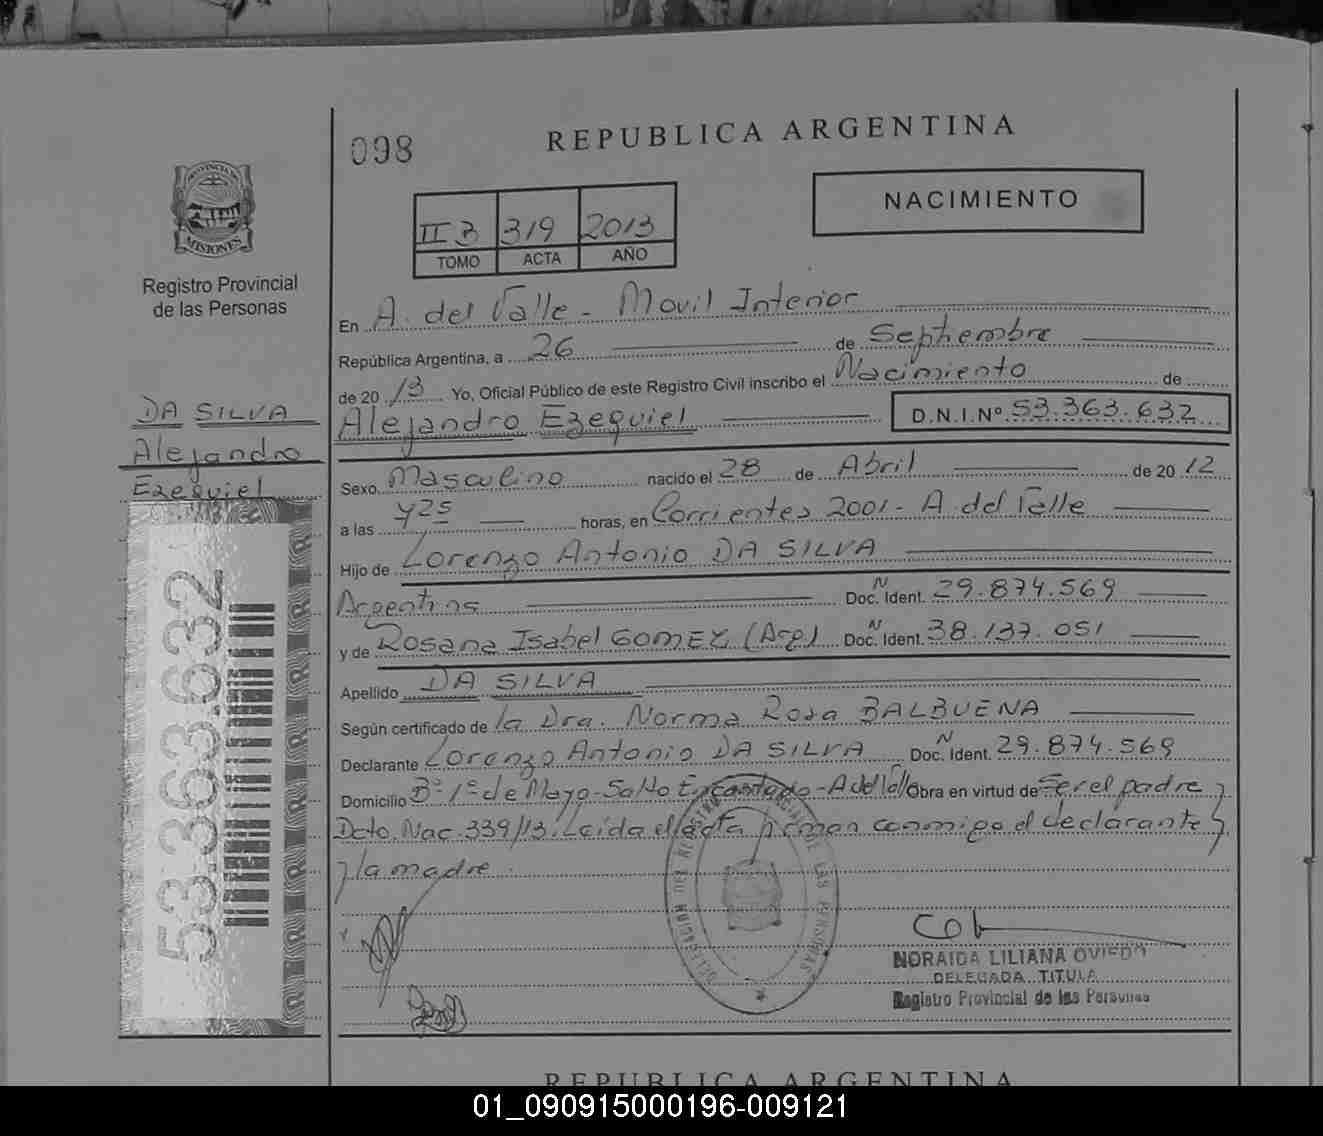 098
REPUBLICA ARGENTINA
PROVINCIA DE
MISIONES
Registro Provincial
de las Personas
NACIMIENTO
II B 319 2013
TOMO ACTA AÑO
En A. del Valle - Movil Interior
República Argentina, a 26 de Septiembre
de 2013 Yo, Oficial Público de este Registro Civil inscribo el Nacimiento de
Alejandro Ezequiel D.N.I.Nº 53.363.632
DA SILVA
Alejandro
Ezequiel
Sexo Masculino nacido el 28 de Abril de 2012
a las 7 25 horas, en Corrientes 2001 - A del Valle
Hijo de Lorenzo Antonio DA SILVA
Argentino Doc. N Ident. 29.874.569
y de Rosana Isabel GOMEZ, (Arg) Doc. N Ident. 38.137.051
Apellido DA SILVA
Según certificado de la Dra. Norma Rosa BALBUENA
Declarante Lorenzo Antonio DA SILVA Doc. N Ident. 29.874.569
Domicilio Bº 1º de Mayo - Salto Encantado - A del Valle Obra en virtud de ser el padre y
Dcto. Nac. 339/13. Leída el acta firman conmigo el declarante
y la madre
53.363.632
NORAIDA LILIANA OVIEDO
DELEGADA TITULA
Registro Provincial de las Personas
REPUBLICA ARGENTINA
01_090915000196-009121